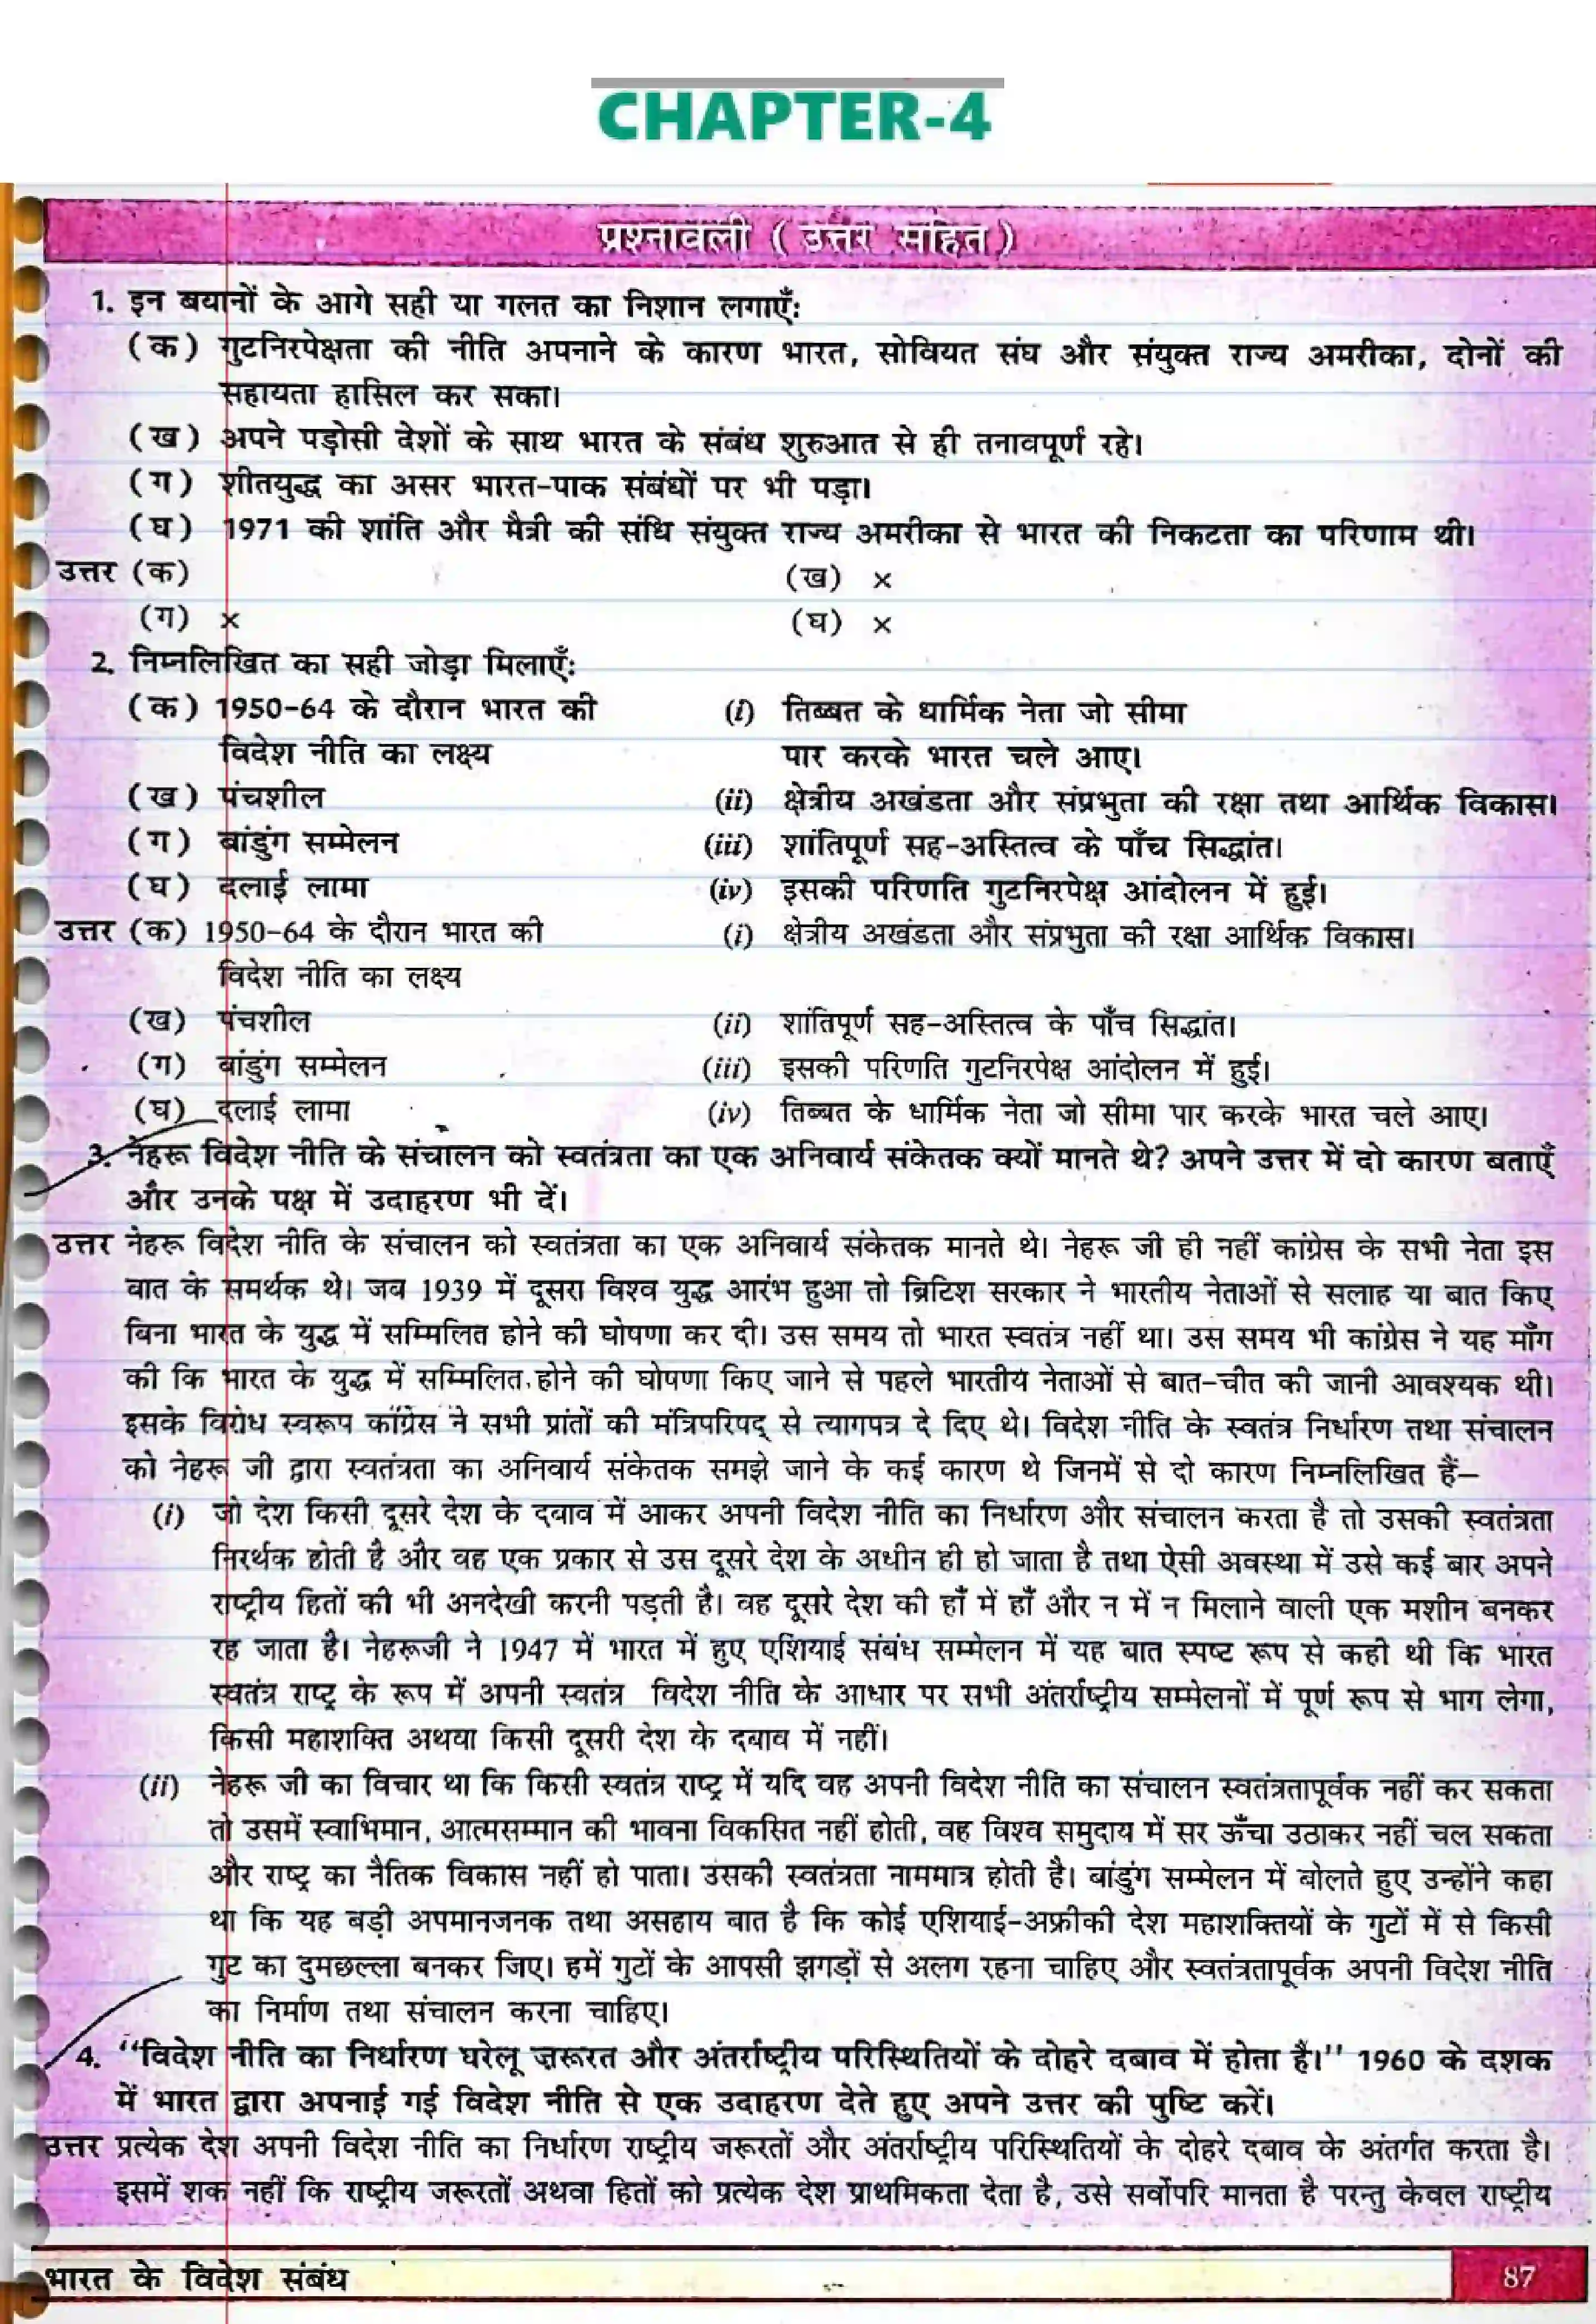 CHAPTER-4
प्रश्नावली ( उत्तर सहित )
1. इन बयानों के आगे सही या गलत का निशान लगाएँ:
(क) गुटनिरपेक्षता की नीति अपनाने के कारण भारत, सोवियत संघ और संयुक्त राज्य अमरीका, दोनों की
सहायता हासिल कर सका।
(ख) अपने पड़ोसी देशों के साथ भारत के संबंध शुरुआत से ही तनावपूर्ण रहे।
(ग) शीतयुद्ध का असर भारत-पाक संबंधों पर भी पड़ा।
(घ) 1971 की शांति और मैत्री की संधि संयुक्त राज्य अमरीका से भारत की निकटता का परिणाम थी।
उत्तर (क) (ख) ×
(ग) × (घ) ×
2. निम्नलिखित का सही जोड़ा मिलाएँ:
(क) 1950-64 के दौरान भारत की (i) तिब्बत के धार्मिक नेता जो सीमा
विदेश नीति का लक्ष्य पार करके भारत चले आए।
(ख) पंचशील (ii) क्षेत्रीय अखंडता और संप्रभुता की रक्षा तथा आर्थिक विकास।
(ग) बांडुंग सम्मेलन (iii) शांतिपूर्ण सह-अस्तित्व के पाँच सिद्धांत।
(घ) दलाई लामा (iv) इसकी परिणति गुटनिरपेक्ष आंदोलन में हुई।
उत्तर (क) 1950-64 के दौरान भारत की (i) क्षेत्रीय अखंडता और संप्रभुता की रक्षा आर्थिक विकास।
विदेश नीति का लक्ष्य
(ख) पंचशील (ii) शांतिपूर्ण सह-अस्तित्व के पाँच सिद्धांत।
(ग) बांडुंग सम्मेलन (iii) इसकी परिणति गुटनिरपेक्ष आंदोलन में हुई।
(घ) दलाई लामा (iv) तिब्बत के धार्मिक नेता जो सीमा पार करके भारत चले आए।
3. नेहरू विदेश नीति के संचालन को स्वतंत्रता का एक अनिवार्य संकेतक क्यों मानते थे? अपने उत्तर में दो कारण बताएँ
और उनके पक्ष में उदाहरण भी दें।
उत्तर नेहरू विदेश नीति के संचालन को स्वतंत्रता का एक अनिवार्य संकेतक मानते थे। नेहरू जी ही नहीं कांग्रेस के सभी नेता इस
बात के समर्थक थे। जब 1939 में दूसरा विश्व युद्ध आरंभ हुआ तो ब्रिटिश सरकार ने भारतीय नेताओं से सलाह या बात किए
बिना भारत के युद्ध में सम्मिलित होने की घोषणा कर दी। उस समय तो भारत स्वतंत्र नहीं था। उस समय भी कांग्रेस ने यह माँग
की कि भारत के युद्ध में सम्मिलित होने की घोषणा किए जाने से पहले भारतीय नेताओं से बात-चीत की जानी आवश्यक थी।
इसके विरोध स्वरूप काँग्रेस ने सभी प्रांतों की मंत्रिपरिषद् से त्यागपत्र दे दिए थे। विदेश नीति के स्वतंत्र निर्धारण तथा संचालन
को नेहरू जी द्वारा स्वतंत्रता का अनिवार्य संकेतक समझे जाने के कई कारण थे जिनमें से दो कारण निम्नलिखित हैं–
(i) जो देश किसी दूसरे देश के दबाव में आकर अपनी विदेश नीति का निर्धारण और संचालन करता है तो उसकी स्वतंत्रता
निरर्थक होती है और वह एक प्रकार से उस दूसरे देश के अधीन ही हो जाता है तथा ऐसी अवस्था में उसे कई बार अपने
राष्ट्रीय हितों की भी अनदेखी करनी पड़ती है। वह दूसरे देश की हाँ में हाँ और न में न मिलाने वाली एक मशीन बनकर
रह जाता है। नेहरूजी ने 1947 में भारत में हुए एशियाई संबंध सम्मेलन में यह बात स्पष्ट रूप से कही थी कि भारत
स्वतंत्र राष्ट्र के रूप में अपनी स्वतंत्र विदेश नीति के आधार पर सभी अंतर्राष्ट्रीय सम्मेलनों में पूर्ण रूप से भाग लेगा,
किसी महाशक्ति अथवा किसी दूसरी देश के दबाव में नहीं।
(ii) नेहरू जी का विचार था कि किसी स्वतंत्र राष्ट्र में यदि वह अपनी विदेश नीति का संचालन स्वतंत्रतापूर्वक नहीं कर सकता
तो उसमें स्वाभिमान, आत्मसम्मान की भावना विकसित नहीं होती, वह विश्व समुदाय में सर ऊँचा उठाकर नहीं चल सकता
और राष्ट्र का नैतिक विकास नहीं हो पाता। उसकी स्वतंत्रता नाममात्र होती है। बांडुंग सम्मेलन में बोलते हुए उन्होंने कहा
था कि यह बड़ी अपमानजनक तथा असहाय बात है कि कोई एशियाई-अफ्रीकी देश महाशक्तियों के गुटों में से किसी
गुट का दुमछल्ला बनकर जिए। हमें गुटों के आपसी झगड़ों से अलग रहना चाहिए और स्वतंत्रतापूर्वक अपनी विदेश नीति
का निर्माण तथा संचालन करना चाहिए।
4. ‘‘विदेश नीति का निर्धारण घरेलू ज़रूरत और अंतर्राष्ट्रीय परिस्थितियों के दोहरे दबाव में होता है।’’ 1960 के दशक
में भारत द्वारा अपनाई गई विदेश नीति से एक उदाहरण देते हुए अपने उत्तर की पुष्टि करें।
उत्तर प्रत्येक देश अपनी विदेश नीति का निर्धारण राष्ट्रीय जरूरतों और अंतर्राष्ट्रीय परिस्थितियों के दोहरे दबाव के अंतर्गत करता है।
इसमें शक नहीं कि राष्ट्रीय जरूरतों अथवा हितों को प्रत्येक देश प्राथमिकता देता है, उसे सर्वोपरि मानता है परन्तु केवल राष्ट्रीय
भारत के विदेश संबंध 87